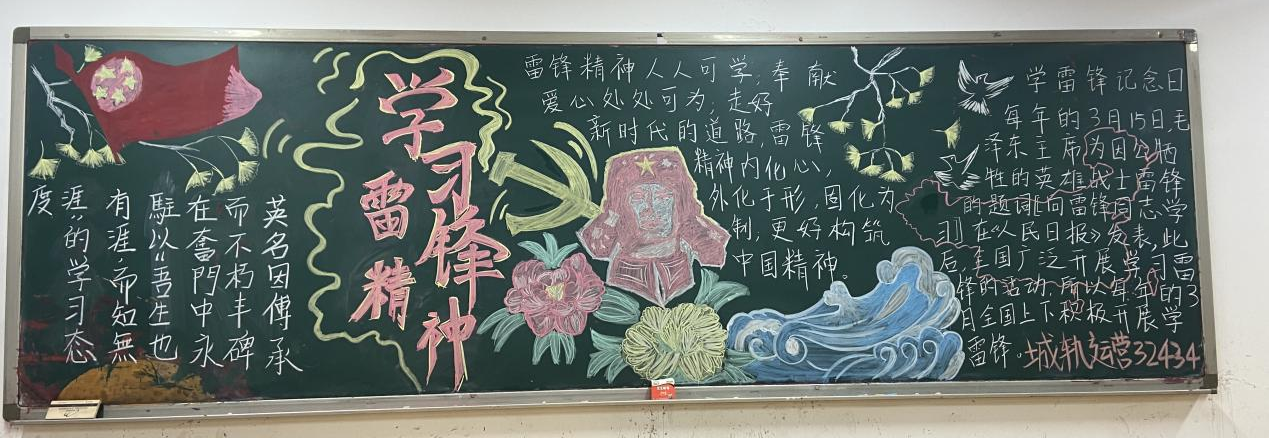 英名因傅承
而不朽丰碑
在奮鬥中永
駐以“吾生也
有涯，而知無
涯”的学习态
度
学习
雷锋
精神
雷锋精神人人可学；奉献
爱心处处可为；走好
新时代的道路，雷锋
精神内化心，
外化于形，固化为
制，更好构筑
中国精神。
学雷锋记念日
每年的3月15日，毛
泽东主席为因公牺
牲的英雄战士雷锋
的题词《向雷锋同志学
习》在《人民日报》发表，此
后，全国广泛开展学习雷
锋的活动，所以每年的3
月全国上下积极开展学
雷锋。城轨运营32434